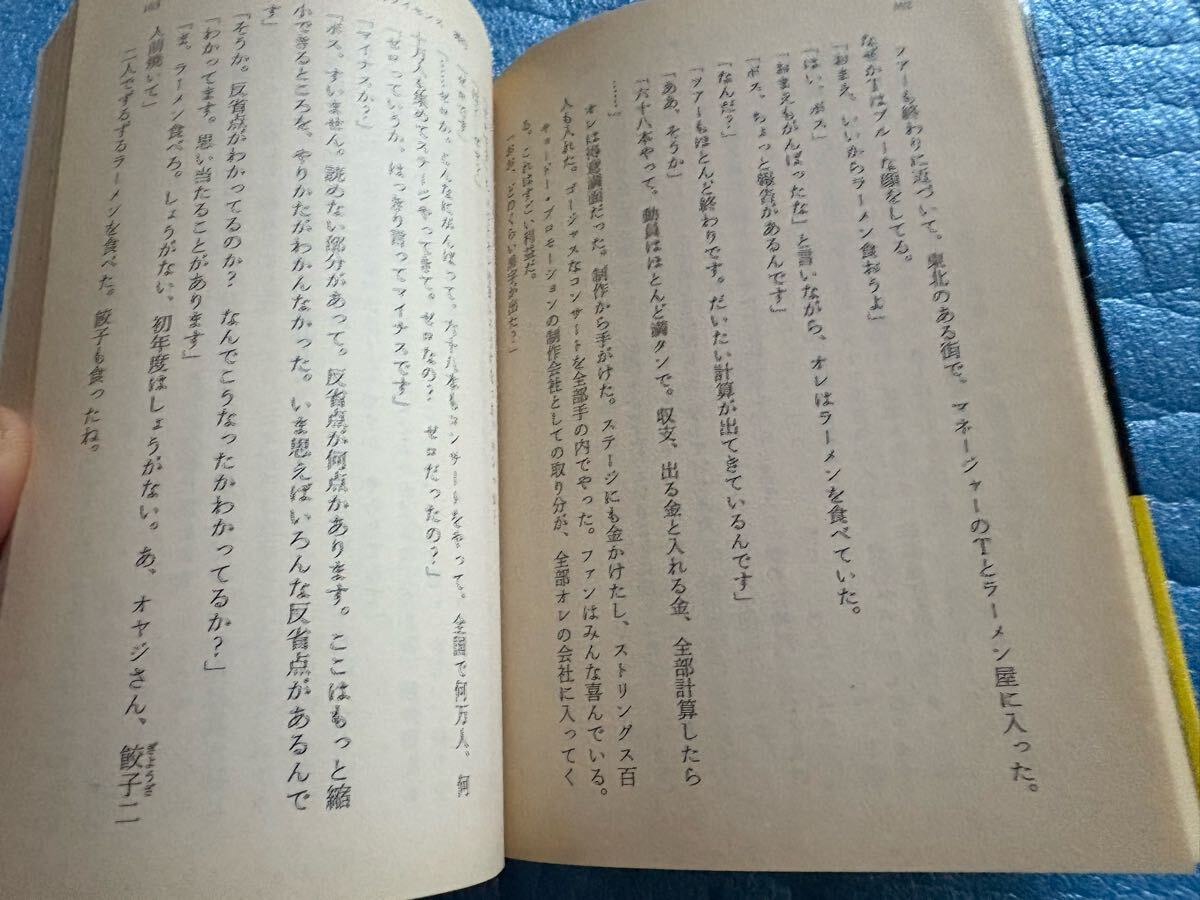 ツアーも終わりに近づいて。東北のある街で、マネージャーのTとラーメン屋に入った。
なぜかTはブルーな顔をしてる。
「おまえ、いいからラーメン食おうよ」
「はい、ボス」
「おまえもがんばったな」と言いながら、オレはラーメンを食べていた。
「ボス、ちょっと報告があるんです」
「なんだ?」
「ツアーもほとんど終わりです。だいたい計算が出てきているんです」
「ああ、そうか」
「六十八本やって。動員はほとんど満タンで。収支、出る金と入れる金、全部計算したら
……」
オレは得意満面だった。制作から手がけた。ステージにも金かけたし、ストリングス百
人も入れた。ゴージャスなコンサートを全部手の内でやった。ファンはみんな喜んでいる。
キョードー・プロモーションの制作会社としての取り分が、全部オレの会社に入ってく
る。これはすごい利益だ。
「ゼロです」
六十八本もコンサートをやって。全国で何万人。何
十万人も集めてステージやってきて。ゼロなの? ゼロだったの?」
「ゼロっていうか。はっきり言ってマイナスです」
「マイナスか?」
「ボス、すいません。読めない部分があって。反省点が何点かあります。ここはもっと縮
小できるところを、やりかたがわかんなかった。いま思えばいろんな反省点があるんで
す」
「そうか。反省点がわかってるのか? なんでこうなったかわかってるか?」
「わかってます。思い当たることがあります」
「ま、ラーメン食べろ。しょうがない、初年度はしょうがない。あ、オヤジさん、餃子二
人前焼いて」
二人でずるずるラーメンを食べた。餃子も食ったね。